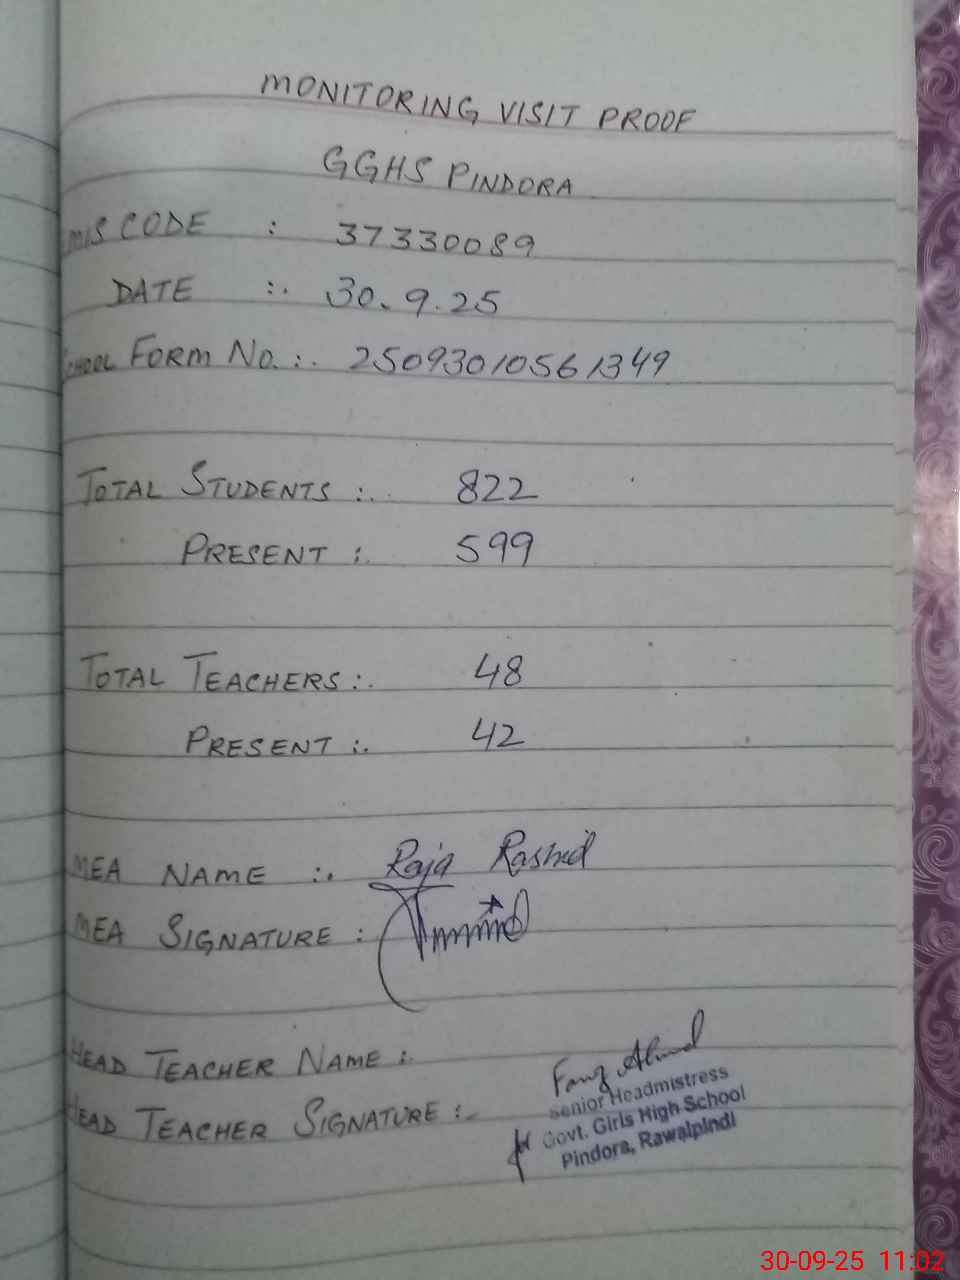 MONITORING VISIT PROOF
GGHS PINDORA
EMIS CODE : 37330089
DATE :. 30.9.25
SCHOOL FORM NO. :. 25093010561349
TOTAL STUDENTS :. 822
PRESENT :. 599
TOTAL TEACHERS :. 48
PRESENT :. 42
MEA NAME :. Raja Rashid
MEA SIGNATURE :
HEAD TEACHER NAME :.
HEAD TEACHER SIGNATURE :.
Ahmad
Senior Headmistress
for Govt. Girls High School
Pindora, Rawalpindi
30-09-25 11:02